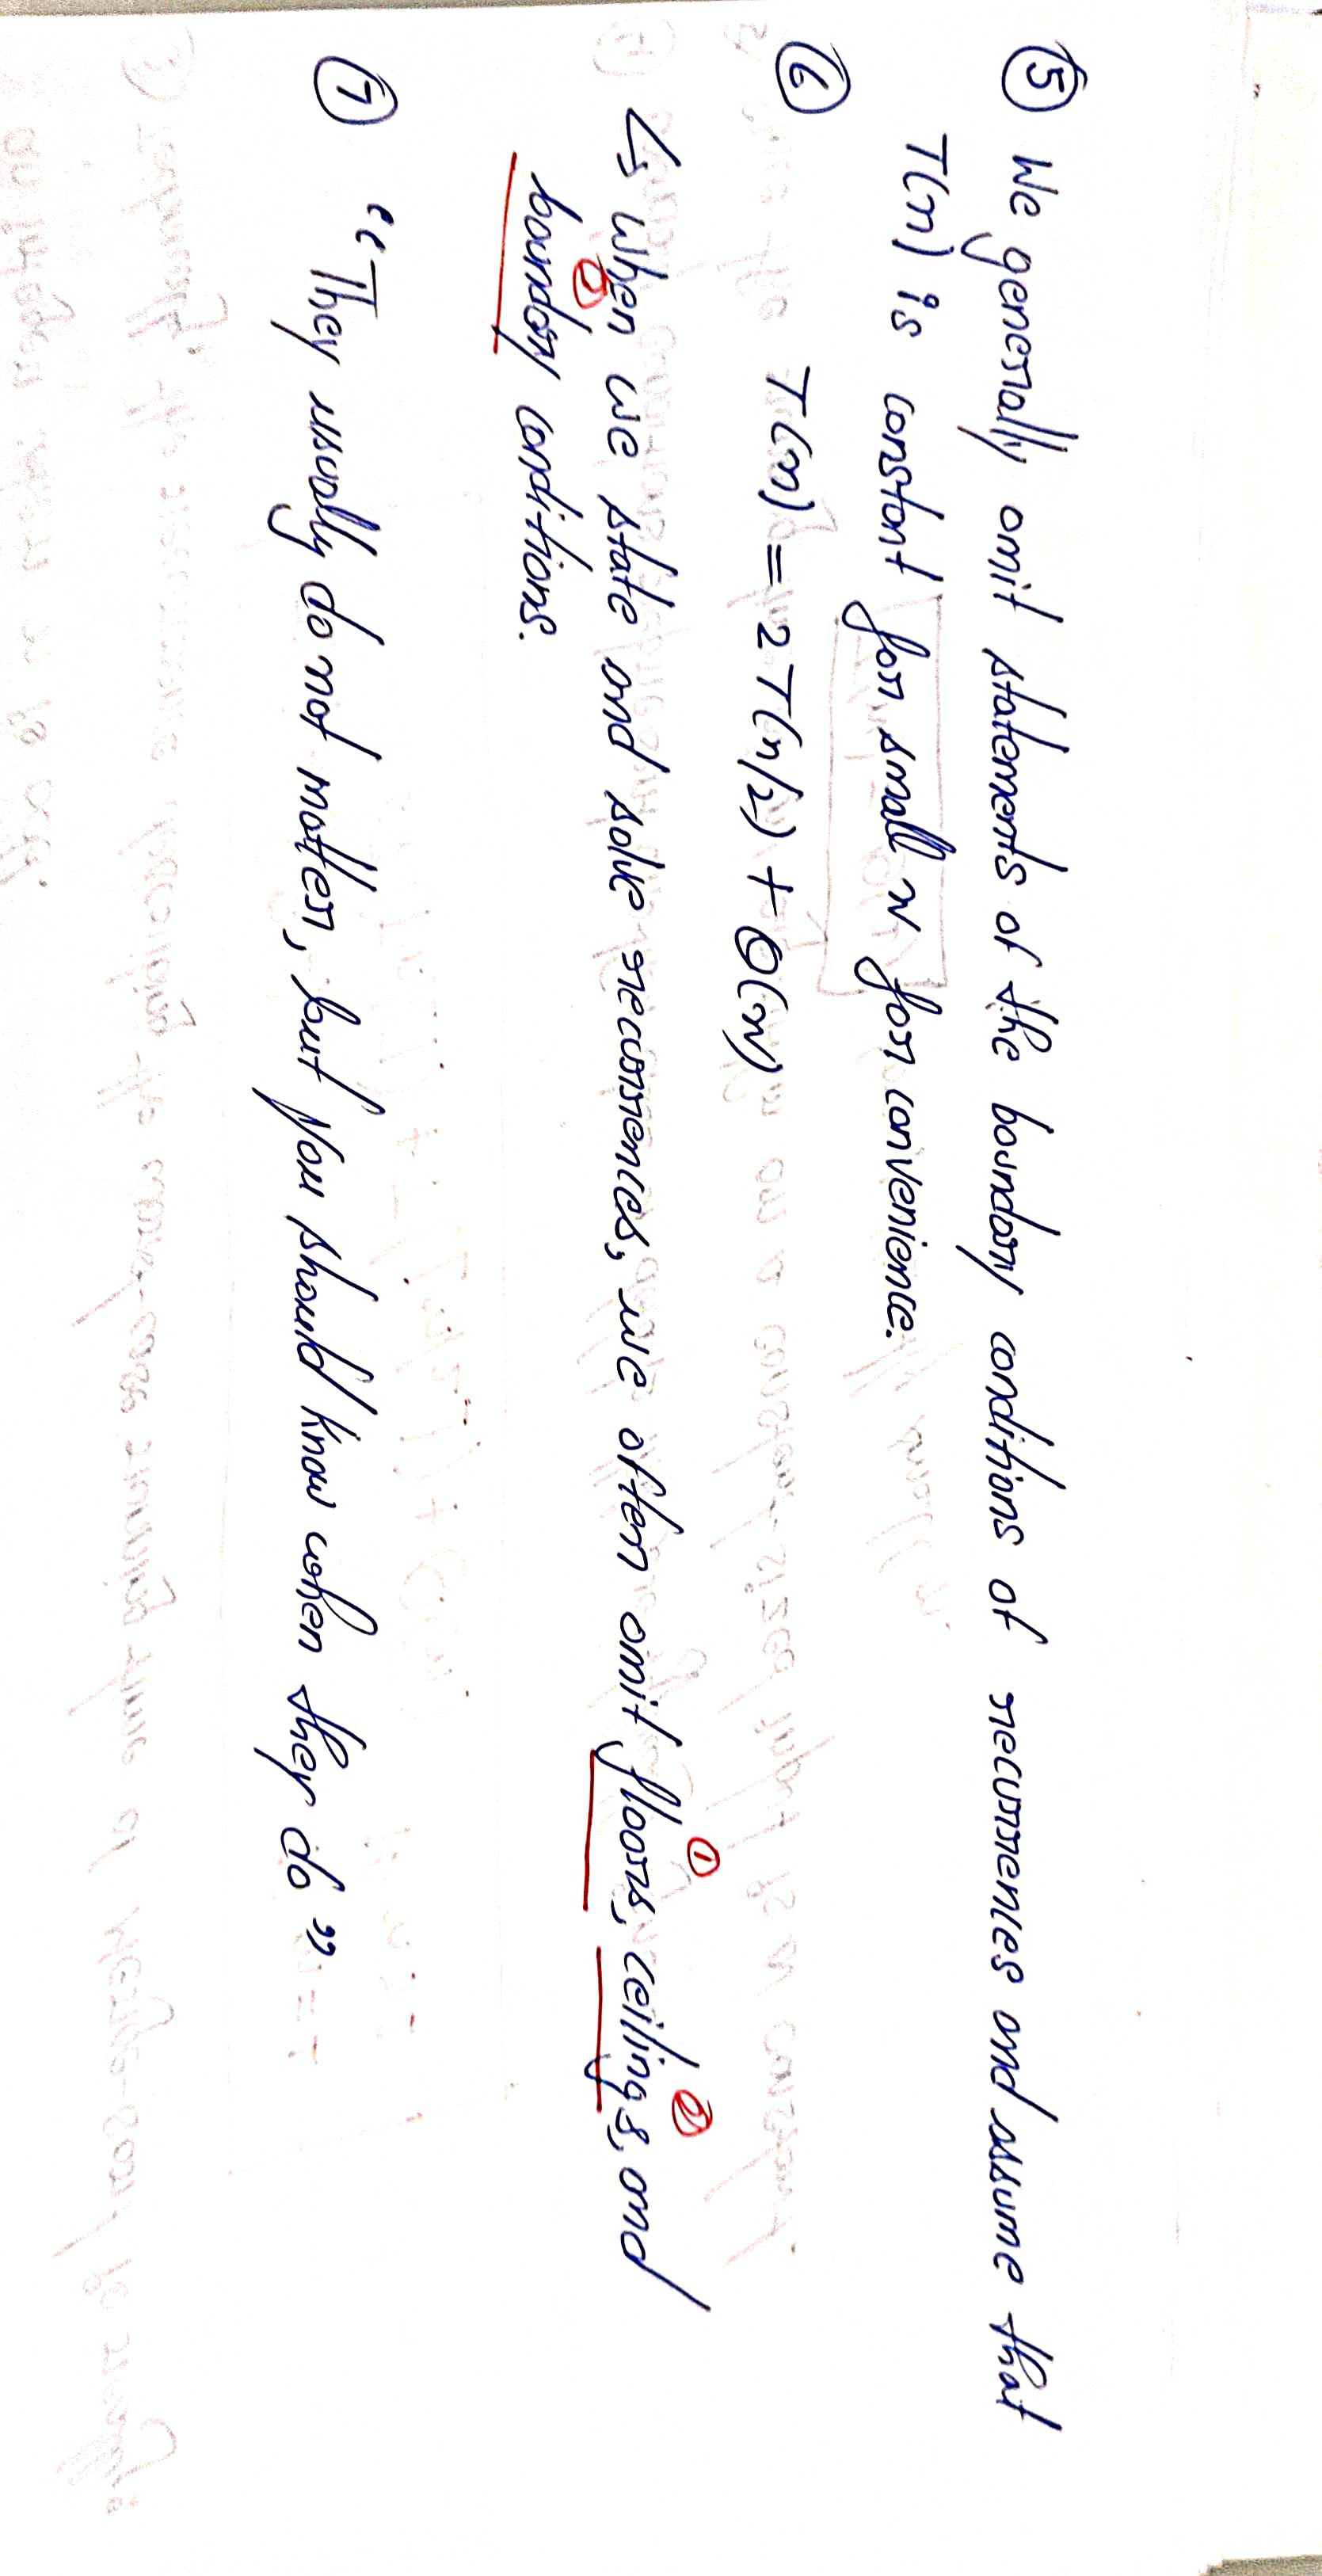 ⑤ We generally omit statements of the boundary conditions of recurrences and assume that
T(n) is constant for small n for convenience.
⑥ T(n) = 2T(n/2) + Θ(n)
↳ When we state and solve recurrences, we often omit floors, ① ceilings, ② and
boundary ③ conditions.
⑦ "They usually do not matter, but you should know when they do"